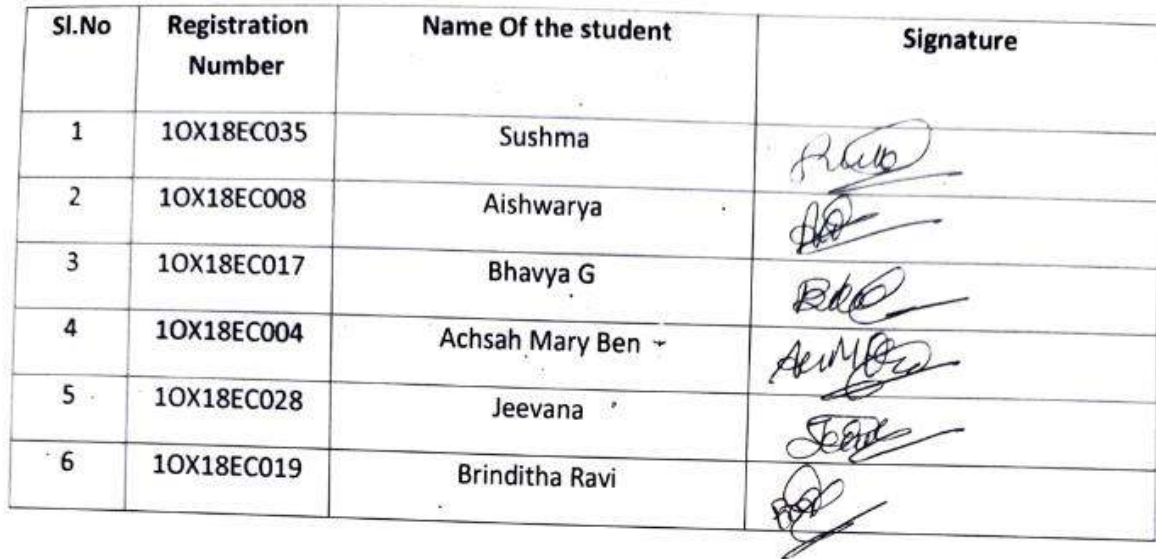 Sl.No Registration Number Name Of the student Signature
1 1OX18EC035 Sushma
2 1OX18EC008 Aishwarya
3 1OX18EC017 Bhavya G
4 1OX18EC004 Achsah Mary Ben
5 1OX18EC028 Jeevana
6 1OX18EC019 Brinditha Ravi